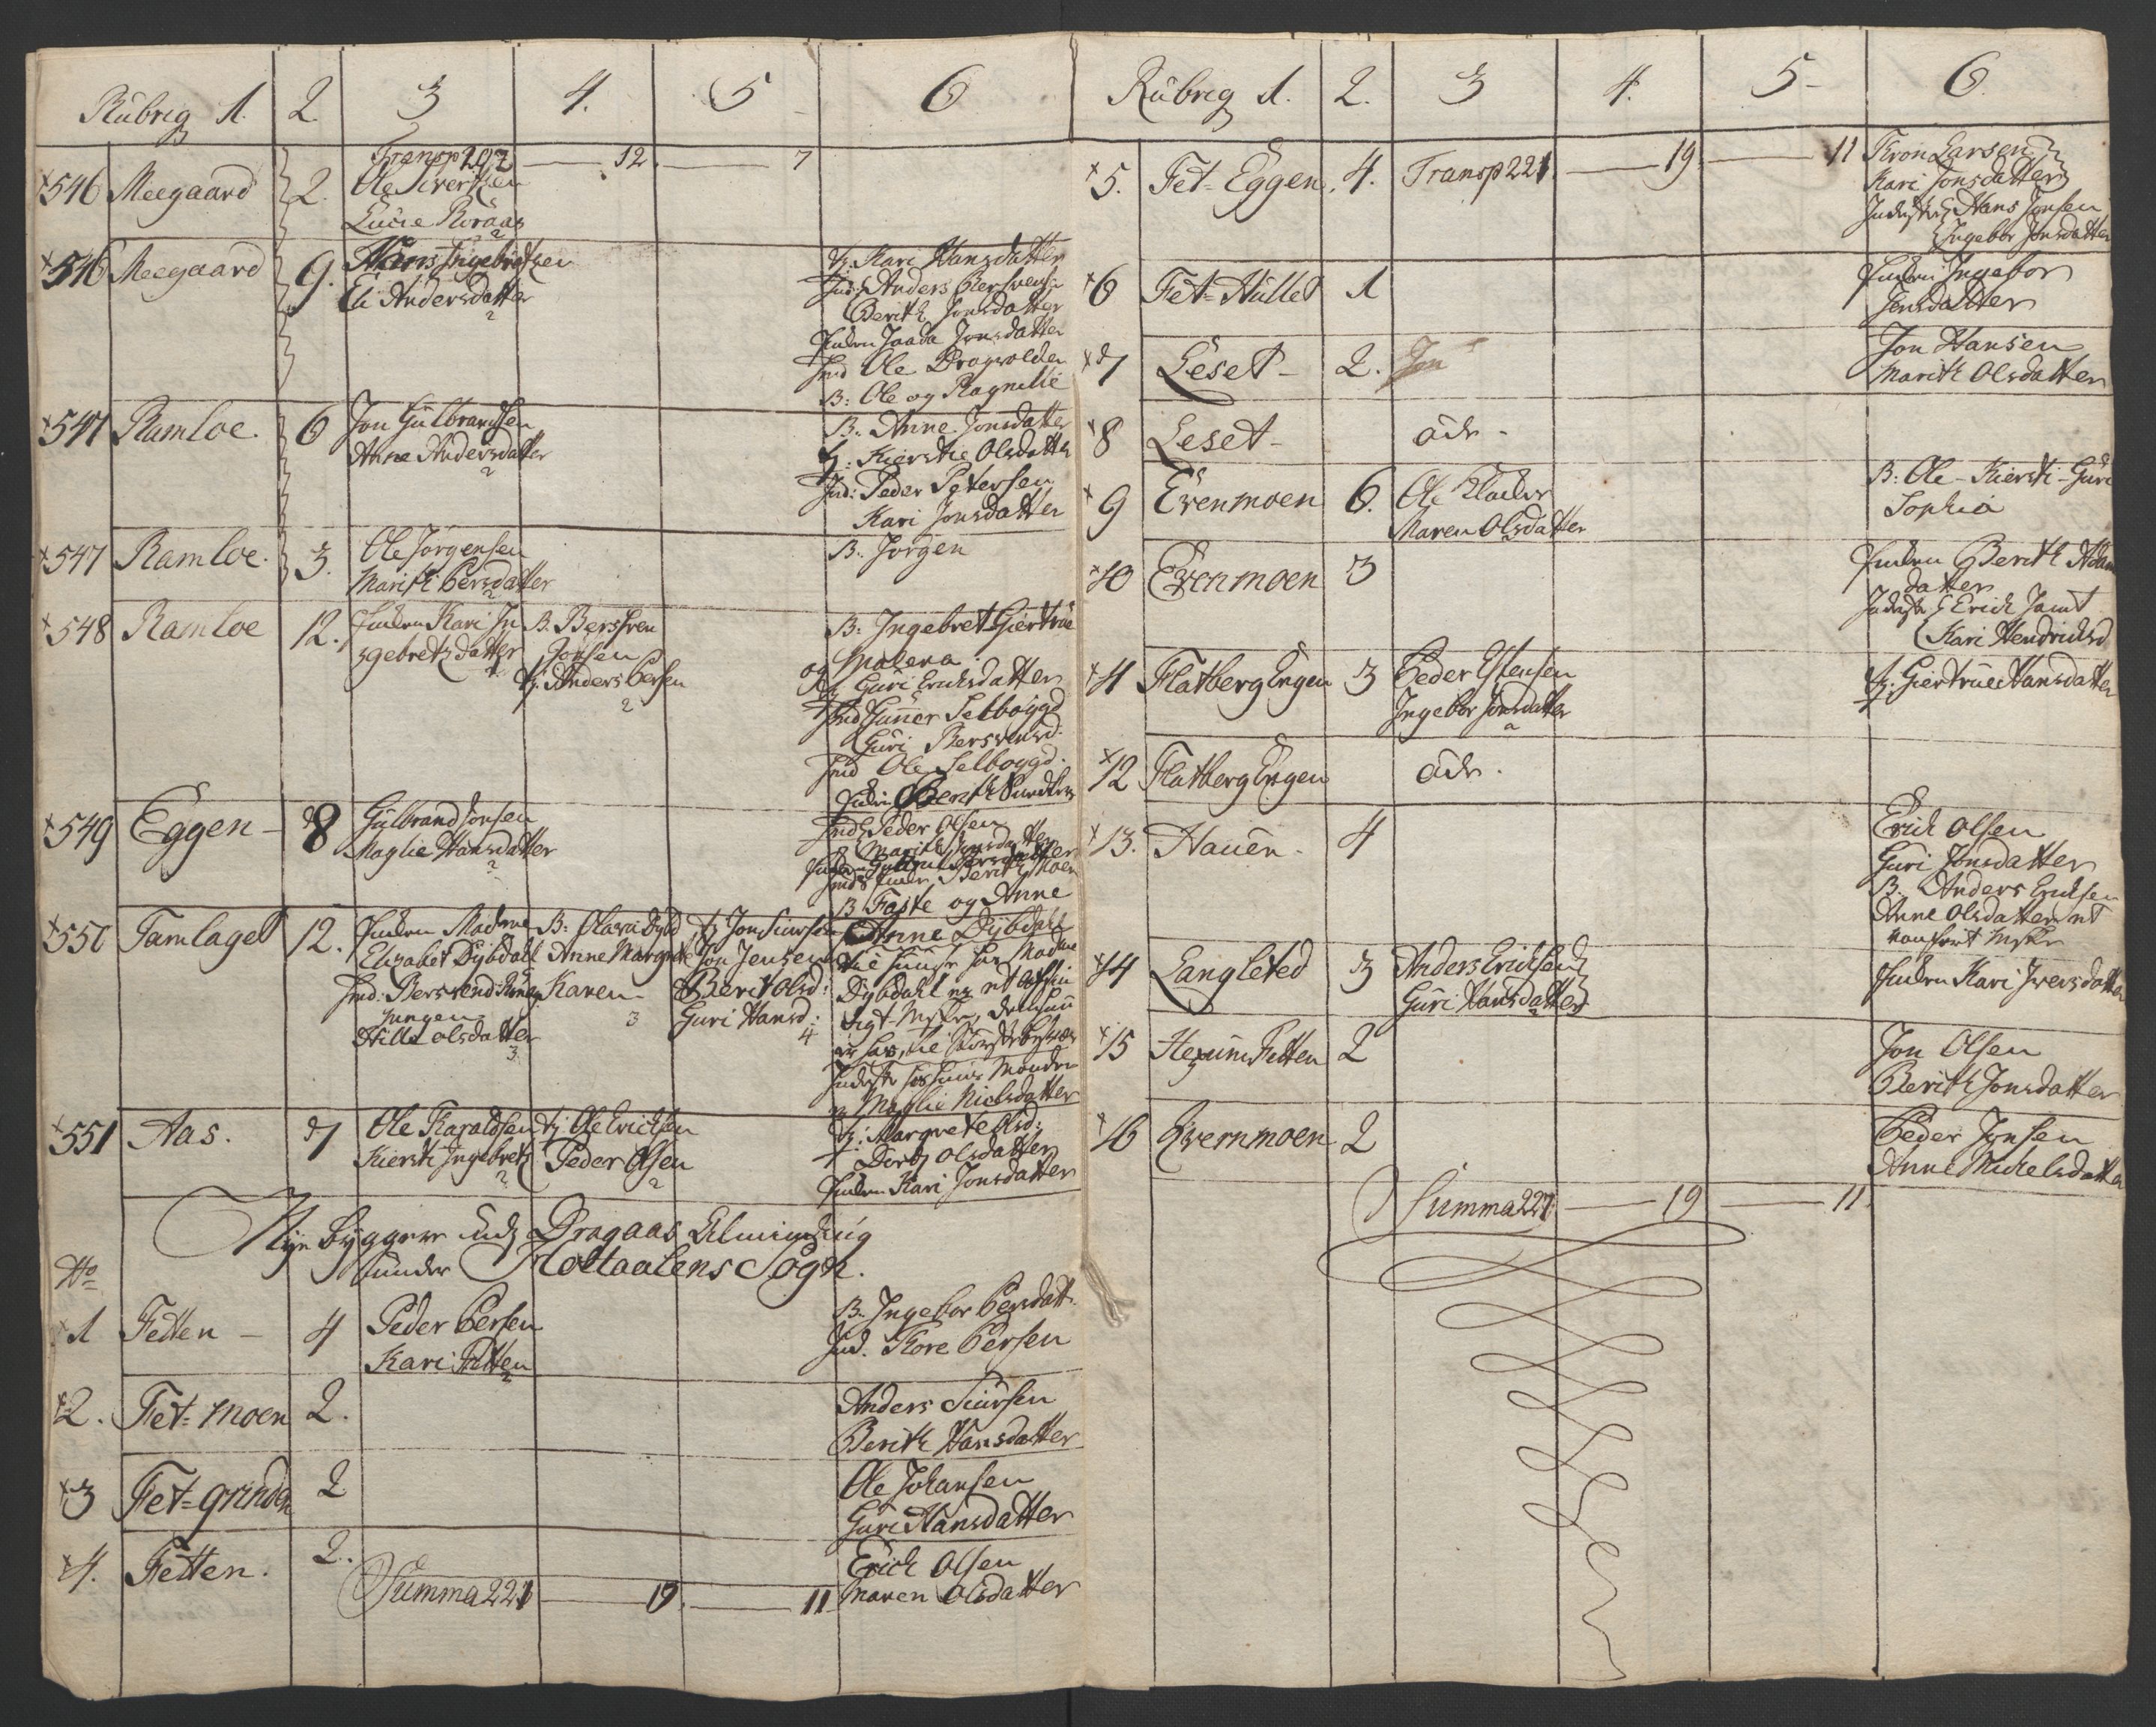 Rubriq 1. 2. 3 4. 5 6
Transp 207 12. 7
546 Meegaard 2. Ole Sivertsen
Lucie Roraas
2
546 Meegaard 9. Hans Ingebrigtsen
Eli Andersdatter
2
Tj. Kari Hansdatter
Ind: Anders Bersvens:
Berith Jonsdatter
Jonsdatter
Ind Ole Dragvolden
B: Ole og Ragnilie
547 Ramloe. 6 Jon Gulbrandsen
Anne Andersdatter
2
B. Anne Jonsdatter
Tj: Kierstie Olsdatter
Ind: Peder Petersen
Kari Jonsdatter
547 Ramloe. 3. Ole Jörgensen
Marith Persdatter
2
B. Jörgen
548 Ramloe 12. Enken Kari In
gebretzdatter
1
B. Bersven
Jonsen
Tj. Anders Persen
2
B: Ingebret Giertrue
og Malena
Tj Guri Ericksdatter
Ind Gunner Selboygd
Guri Bersvensd:
Ind Ole Selboygd.
549 Eggen - 8 Gulbrand Jonsen
Maglie Hansdatter
2
Ind Peder Olsen
Marith Jonsdatter
B Faste og Anne
550 Tamlaget 12. Enken Madme
Elizabet Dybdahl
Ind: Bersvend
Jungen
Hille olsdatter
3.
B: Olava Dybd
Anne Margrete
Karen
3
Tj Jon Siursen
Jon Jensen
Berit olsd:
Guri Hansd:
4
Anne Dybdahl
Dybdahl
Maglie Nielsdatter
551 Aas. 7 Ole Haraldsen
Kiersti Ingebretz
2
Tj Ole Ericksen
Peder Olsen
2
Tj: Margrete Olsd:
Dorty Olsdatter
Enken Kari Jonsdatter
Nye byggere udj Dragaas Alminding
under Holtaalens Sogn.
No
1 Fetten - 4 Peder Persen
Kari Fetten
2
B. Ingebor Persdatt.
Ind. Tore Persen
2. Fet=moen 2.
Anders Siursen
Berith Hansdatter
3 Fet=grinden 2
Ole Johansen
Guri Hansdatter
4. Fetten. 2.
Erich Olsen
Maren Olsdatter
Summa 221 19. 11
Rubriq 1. 2. 3 4. 5- 6.
5. Fet=Eggen. 4. Transp 221 19. 11
Tron Larsen
Kari Jonsdatter
Inderste Hans Jonsen
Ingebor Jonsdatter
6 Fet=Hullet 1
Enken Ingebor
Jensdatter
7 Leset- 2. Jon
Jon Hansen
Marith Olsdatter
8 Leset- öde.
9 Evenmoen 6. Ole Klocker
Maren Olsdatter
B: Ole - Kiersti - Guri
Sophia
10 Evenmoen 3
Enken Berith Adam
datter
Inderste Erich Jamt
Kari Hendricksd
11 Flatberg Engen 3 Peder Estensen
Ingebor Jonsdatter
2
Tj. Giertrue Hansdatter
12 Flatberg Engen öde.
13. Hauen. 4
Erich Olsen
Guri Jonsdatter
B. Anders Ericksen
Anne Olsdatter et
vanført Mske
14 Langleted 3 Anders Ericksen
Guri Hansdatter
2
Enken Kari Iversdatter
15 Hexum Fetten 2
Jon Olsen
Berith Jonsdatter
16 Qvernmoen 2
Peder Jonsen
Anne Mickelsdatter
Summa 227 19 11.